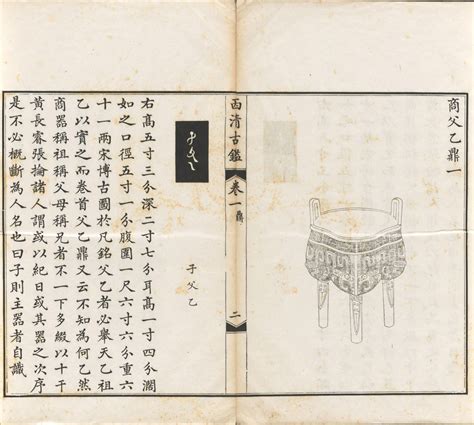 商父乙鼎一
西清古鑑
卷一
鼎
二
子父乙
右高五寸三分深二寸七分耳高一寸四分闊
如之口徑五寸一分腹圍一尺六寸六分重六
十一兩宋博古圖於凡銘父乙者必舉天乙祖
乙以實之而卷首父乙鼎又云不知為何乙然
商器稱祖稱父母稱兄者不一下多綴以十干
黃長睿張掄諸人謂或以紀日或其器之次序
是不必概斷為人名也曰子則主器者自識